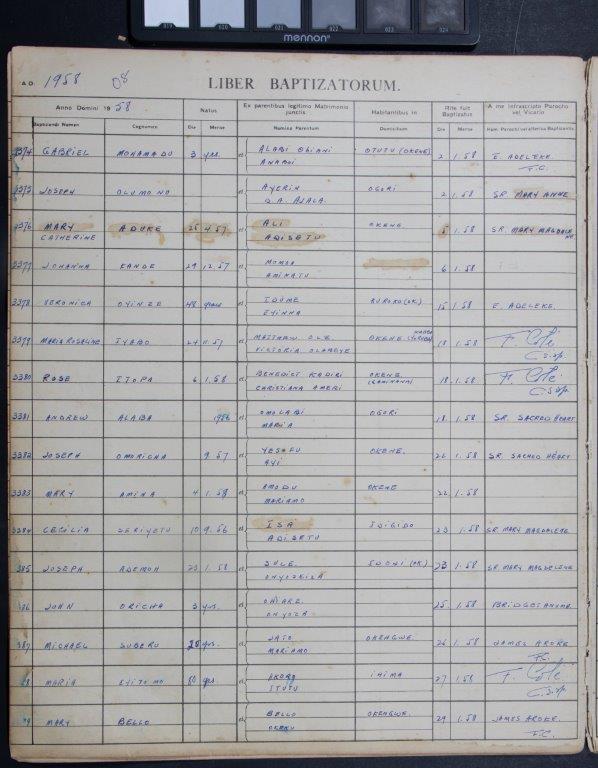 mennon
A.D. 1958 08
LIBER BAPTIZATORUM.
Anno Domini 1958 Natus Ex parentibus legitimo Matrimonio junctis Habitantibus in Rite fuit Baptizatus A me infrascripto Parocho vel Vicario
Baptizandi Nomen Cognomen Die Mense Nomina Parentum Domicilium Die Mense
3374 GABRIEL MOHAMADU 3 yrs. et ALABI OBIANI OTUTU (OKENE) 2 1.58 E. ADELEKE.
F.C.
JOSEPH OLUMONO et AYERIN OGORI 2 1.58 SR. MARY ANNE
AJALA.
3376 MARY ADUKE 25 4.57 et ALI OKENE 5 1.58 SR. MARY MAGDALENE
CATHERINE ADISETU
3377 JOHANNA KANDE 29 12.57 et MOMSA 6 1.58
AMINATU
3378 VERONICA OYINZE 48 years et IDUME KUROKO(OK.) 15 1.58 E. ADELEKE.
EYINNA
3379 MARIA ROSALINE IYABO 24 11.57 et MATTHEW OLE OKENE 18 1.58 F. Colé
VICTORIA C.S.Sp.
3380 ROSE ITOPA 6 1.58 et BENEDICT KADIRI OKENE 18.1.58 F. Colé
CHRISTIANA AMERI C.S.Sp.
3381 ANDREW ALABA 1956 et OMOLABI OGORI 18 1.58 SR. SACRED HEART
MARIA
3382 JOSEPH OMORICHA 9 57 et YESUFU OKENE. 22 1.58 SR. SACRED HEART
AYI
3383 MARY AMINA 4 1.58 et AMODU OKENE 22 1.58
MARIAMO
3384 CECILIA SERIYETU 10 9.56 et ISA IDIGIDO 23 1.58 SR. MARY MAGDALENE
ADISETU
385 JOSEPH ADEMOH 20 1.58 et SULE. IDOHI (OK.) 23 1.58 SR. MARY MAGDELENE
ONYOZKIZA
JOHN ORICHA 3 yrs. et OHIARE. 25 1.58
ONYOZA
387 MICHAEL SUBERU yrs. et JATO OKENGWE. 26 1.58 JAMES AROKE
MARIAMO F.C.
MARIA 80 yrs. et IHIMA 27 1.58 F. Colé
ITUTU C.S.Sp.
MARY BELLO et BELLO OKENGWE. 29 1.58 JAMES AROKE.
OKAKU F.C.